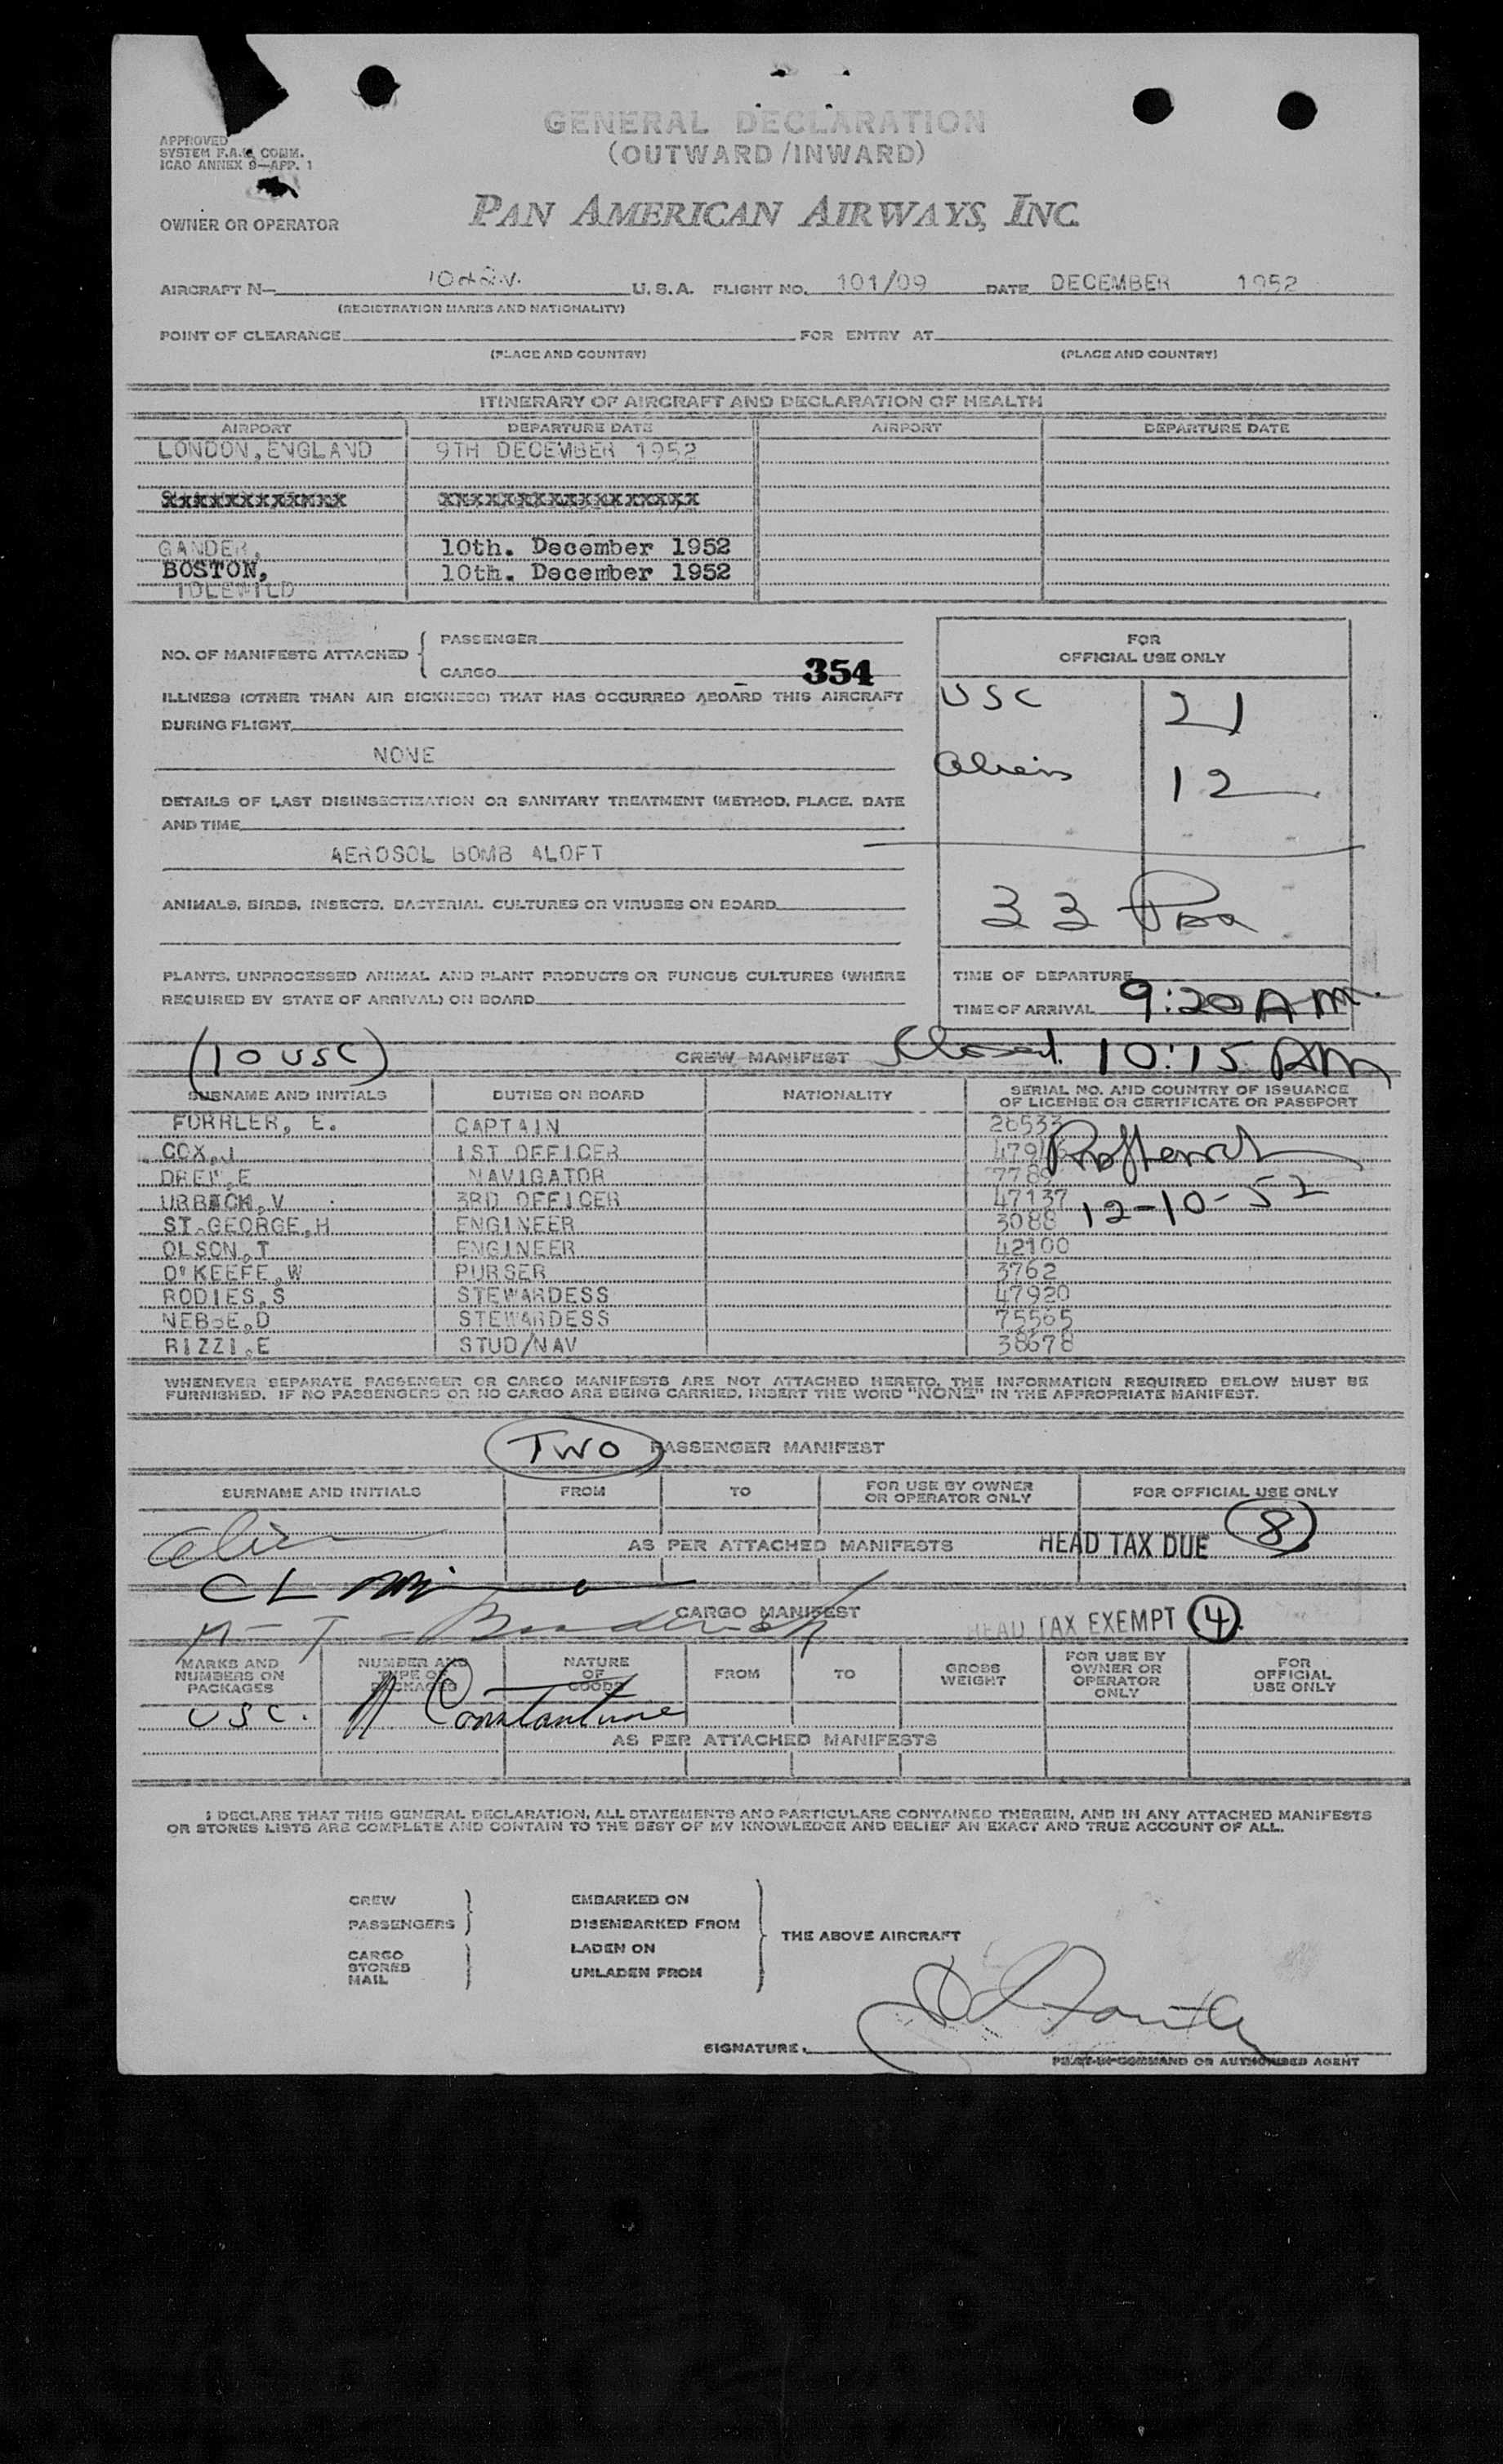 GENERAL DECLARATION
(OUTWARD/INWARD)
APPROVED
SYSTEM F.A.L. COMM.
ICAO ANNEX 9—APP. 1
OWNER OR OPERATOR
PAN AMERICAN AIRWAYS, INC.
AIRCRAFT N— U.S.A. FLIGHT NO. 101/09 DATE DECEMBER 1952
(REGISTRATION MARKS AND NATIONALITY)
POINT OF CLEARANCE FOR ENTRY AT
(PLACE AND COUNTRY) (PLACE AND COUNTRY)
ITINERARY OF AIRCRAFT AND DECLARATION OF HEALTH
AIRPORT DEPARTURE DATE AIRPORT DEPARTURE DATE
LONDON, ENGLAND 9TH DECEMBER 1952
GANDER, 10th. December 1952
BOSTON, 10th. December 1952
IDLEWILD
NO. OF MANIFESTS ATTACHED { PASSENGER
CARGO 354
FOR
OFFICIAL USE ONLY
ILLNESS (OTHER THAN AIR SICKNESS) THAT HAS OCCURRED ABOARD THIS AIRCRAFT
DURING FLIGHT
NONE
USC 21
Aliens 12
DETAILS OF LAST DISINSECTIZATION OR SANITARY TREATMENT (METHOD, PLACE, DATE
AND TIME
AEROSOL BOMB ALOFT
33 Pax
ANIMALS, BIRDS, INSECTS, BACTERIAL CULTURES OR VIRUSES ON BOARD
PLANTS, UNPROCESSED ANIMAL AND PLANT PRODUCTS OR FUNGUS CULTURES (WHERE
REQUIRED BY STATE OF ARRIVAL) ON BOARD
TIME OF DEPARTURE
TIME OF ARRIVAL 9:20 AM.
(10 USC) CREW MANIFEST Closed. 10:15 AM
SURNAME AND INITIALS DUTIES ON BOARD NATIONALITY SERIAL NO. AND COUNTRY OF ISSUANCE
OF LICENSE OR CERTIFICATE OR PASSPORT
E. CAPTAIN 28533
COX, J 1ST OFFICER
DREW, E NAVIGATOR
URBACH, V 3RD OFFICER 47137
12-10-52
ST.GEORGE, H ENGINEER 3088
OLSON, T ENGINEER 42100
O'KEEFE, W PURSER 3762
RODIES, S STEWARDESS 47920
NEBBE, D STEWARDESS 75565
RIZZI, E STUD/NAV 38678
WHENEVER SEPARATE PASSENGER OR CARGO MANIFESTS ARE NOT ATTACHED HERETO, THE INFORMATION REQUIRED BELOW MUST BE
FURNISHED. IF NO PASSENGERS OR NO CARGO ARE BEING CARRIED, INSERT THE WORD "NONE" IN THE APPROPRIATE MANIFEST.
TWO PASSENGER MANIFEST
SURNAME AND INITIALS FROM TO FOR USE BY OWNER
OR OPERATOR ONLY FOR OFFICIAL USE ONLY
Alien AS PER ATTACHED MANIFESTS HEAD TAX DUE 8
CL
CARGO MANIFEST HEAD TAX EXEMPT 4
MARKS AND
NUMBERS ON
PACKAGES NUMBER AND
TYPE OF
PACKAGES NATURE
OF
GOODS FROM TO GROSS
WEIGHT FOR USE BY
OWNER OR
OPERATOR
ONLY FOR
OFFICIAL
USE ONLY
USC. Constantine
AS PER ATTACHED MANIFESTS
I DECLARE THAT THIS GENERAL DECLARATION, ALL STATEMENTS AND PARTICULARS CONTAINED THEREIN, AND IN ANY ATTACHED MANIFESTS
OR STORES LISTS ARE COMPLETE AND CONTAIN TO THE BEST OF MY KNOWLEDGE AND BELIEF AN EXACT AND TRUE ACCOUNT OF ALL.
CREW EMBARKED ON
PASSENGERS DISEMBARKED FROM
THE ABOVE AIRCRAFT
CARGO LADEN ON
STORES
MAIL UNLADEN FROM
SIGNATURE
PILOT-IN-COMMAND OR AUTHORISED AGENT